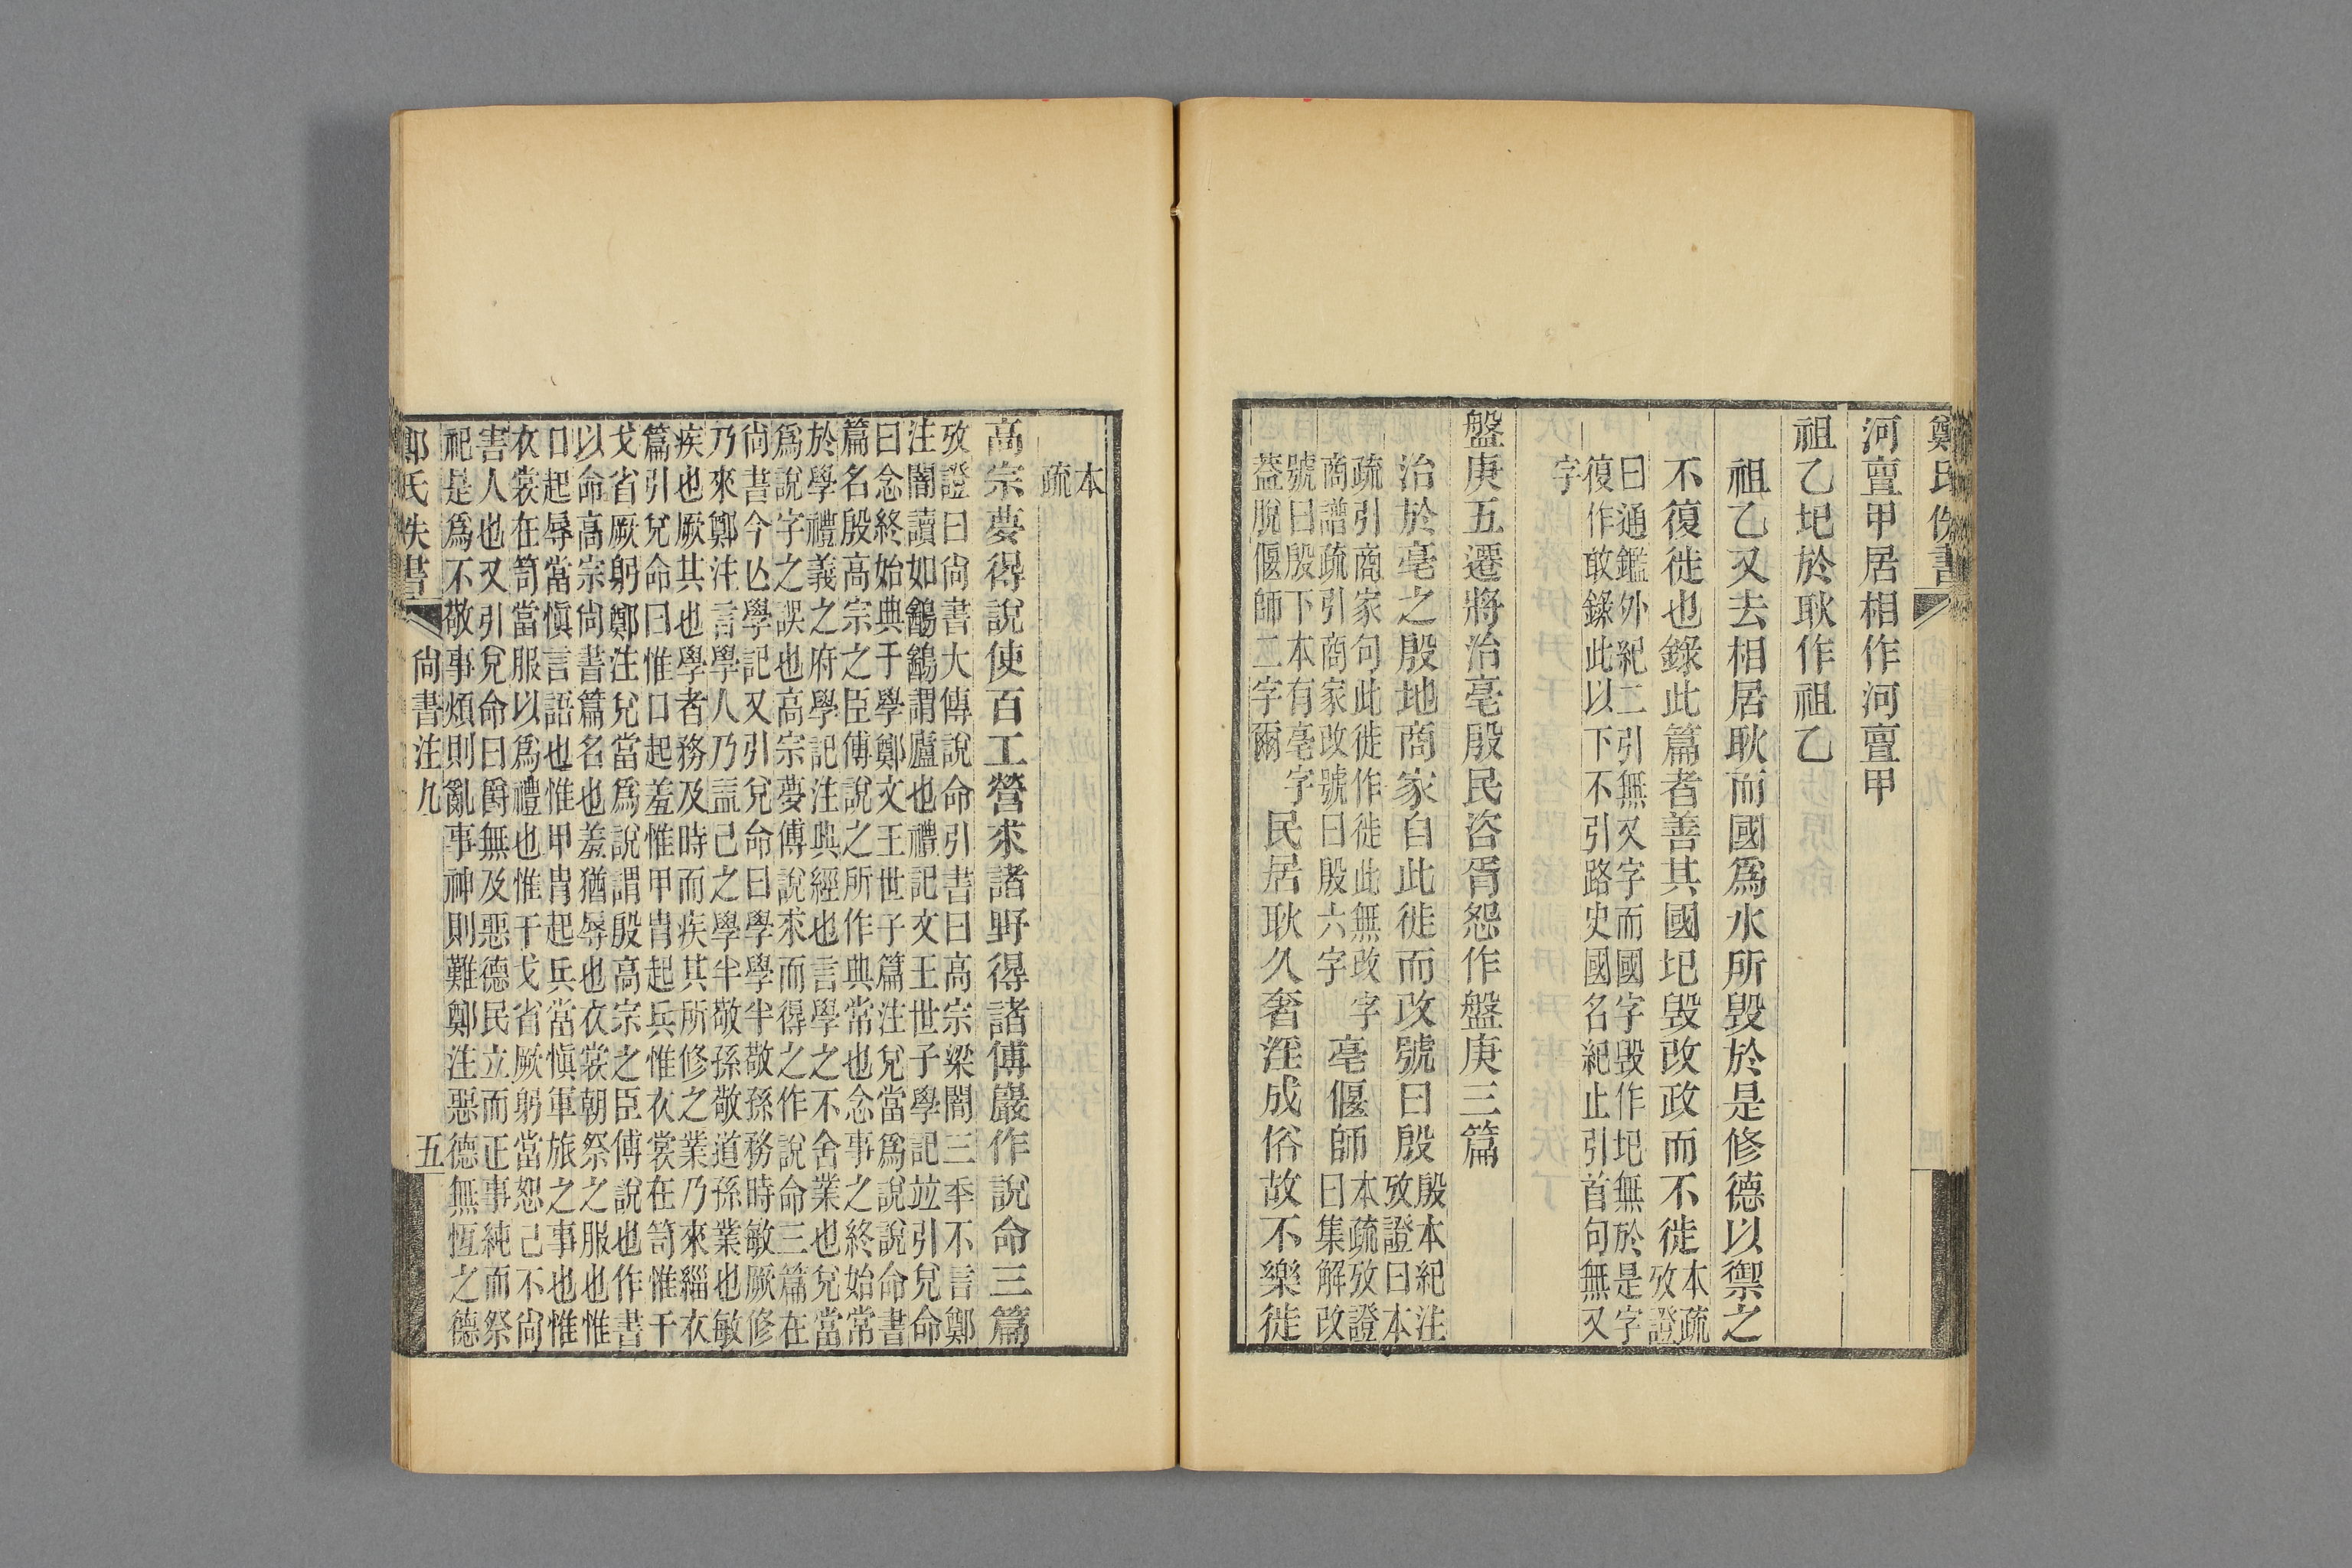 鄭氏佚書
河亶甲居相作河亶甲
祖乙圯於耿作祖乙
祖乙又去相居耿而國爲水所毀於是修德以禦之
不復徙也錄此篇者善其國圯毀改政而不徙本疏攷證
曰通鑑外紀二引無又字而國字毀作圯無於是字
復作敢錄此以下不引路史國名紀止引首句無又
字
盤庚五遷將治亳殷民咨胥怨作盤庚三篇
治於亳之殷地商家自此徙而改號曰殷殷本紀注攷證曰本
疏引商家句此徙作徙此無改字
商譜疏引商家改號曰殷六字
亳偃師本疏攷證曰集解改
號曰殷下本有亳字
葢脫偃師二字爾
民居耿久奢淫成俗故不樂徙
本
疏
高宗夢得說使百工營求諸野得諸傅巖作說命三篇
攷證曰尙書大傳說命引書曰高宗梁闇三秊不言鄭
注闇讀如鶴鶴謂廬也禮記文王世子學記竝引兌命
曰念終始典于學鄭文王世子篇注兌當爲說說命書
篇名殷高宗之臣傅說之所作典常也念事之終始常
於學禮義之府學記注典經也言學之不舍業也兌當
爲說字之誤也高宗夢傅說求而得之作說命三篇在
尙書今亾學記又引兌命曰學學半敬孫務時敏厥修
乃來鄭注言學人乃益己之學半敬孫敬道孫業也敏
疾也厥其也學者務及時而疾其所修之業乃來緇衣
篇引兌命曰惟口起羞惟甲冑起兵惟衣裳在笥惟干
戈省厥躬鄭注兌當爲說謂殷高宗之臣傅說也作書
以命高宗尙書篇名也羞猶辱也衣裳朝祭之服也惟
口起辱當愼言語也惟甲冑起兵當愼軍旅之事也惟
衣裳在笥當服以爲禮也惟干戈省厥躬當恕己不尙
害人也又引兌命曰爵無及惡德民立而正事純而祭
祀是爲不敬事煩則亂事神則難鄭注惡德無恆之德
鄭氏佚書 尙書注九 五